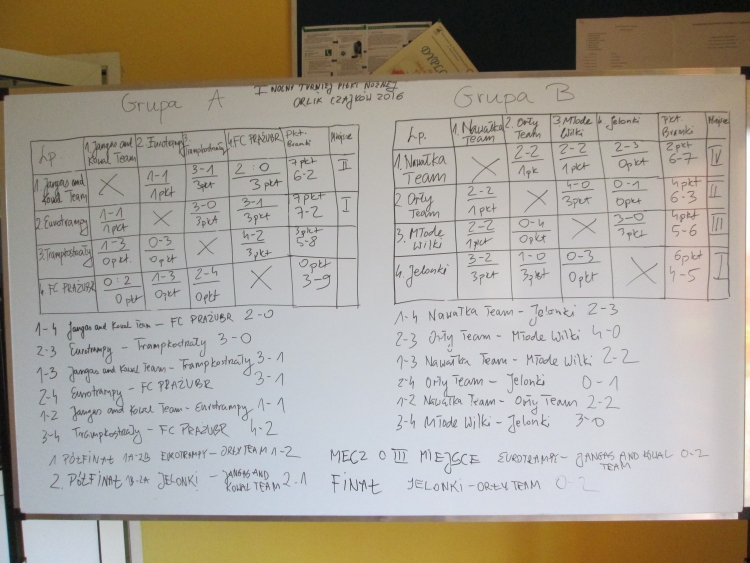 I WOLNY TURNIEJ PIŁKI NOŻNEJ
ORLIK CZAJKÓW 2016
Grupa A
Lp 1. Jangas and Kowal Team 2. Eurotrampy 3. Trampkostrzały 4 FC PRAŻUBR Pkt. Bramki Miejsce
1. Jangas and Kowal Team 1-1 1pkt 3-1 3pkt 2:0 3pkt 7pkt 6-2 II
2. Eurotrampy 1-1 1pkt 3-0 3pkt 3-1 3pkt 7pkt 7-2 I
3. Trampkostrzały 1-3 0pkt. 0-3 0pkt 4-2 3pkt 3pkt 5-8
4. FC PRAŻUBR 0:2 0pkt 1-3 0pkt 2-4 0pkt 0pkt 3-9
1-4 Jangas and Kowal Team - FC PRAŻUBR 2-0
2-3 Eurotrampy - Trampkostrzały 3-0
1-3 Jangas and Kowal Team - Trampkostrzały 3-1
2-4 Eurotrampy - FC PRAŻUBR 3-1
1-2 Jangas and Kowal Team - Eurotrampy 1-1
3-4 Trampkostrzały - FC PRAŻUBR 4-2
1 PÓŁFINAŁ 1A-2B EUROTRAMPY - ORŁY TEAM 1-2
2. PÓŁFINAŁ 1B-2A JELONKI - JANGAS AND KOWAL TEAM 2-1
Grupa B
Lp. 1. Nawałka Team 2. Orły Team 3. Młode Wilki 4. Jelonki Pkt Bramki Miejsce
1. Nawałka Team 2-2 1pk 2-2 1pkt 2-3 0pkt 2pkt 6-7 IV
2 Orły Team 2-2 1pkt 4-0 3pkt 0-1 0pkt 4pkt 6-3 II
3. Młode Wilki 2-2 1pkt 0-4 0pkt 3-0 3pkt 4pkt 5-6 III
4. Jelonki 3-2 3pkt 1-0 3pkt 0-3 0pkt 6pkt 4-5 I
1-4 Nawałka Team - Jelonki 2-3
2-3 Orły Team - Młode Wilki 4-0
1-3 Nawałka Team - Młode Wilki 2-2
2-4 Orły Team - Jelonki 0-1
1-2 Nawałka Team - Orły Team 2-2
3-4 Młode Wilki - Jelonki 3-0
MECZ O III MIEJSCE EUROTRAMPY - JANGAS AND KOWAL TEAM 0-2
FINAŁ JELONKI - ORŁY TEAM 0-2